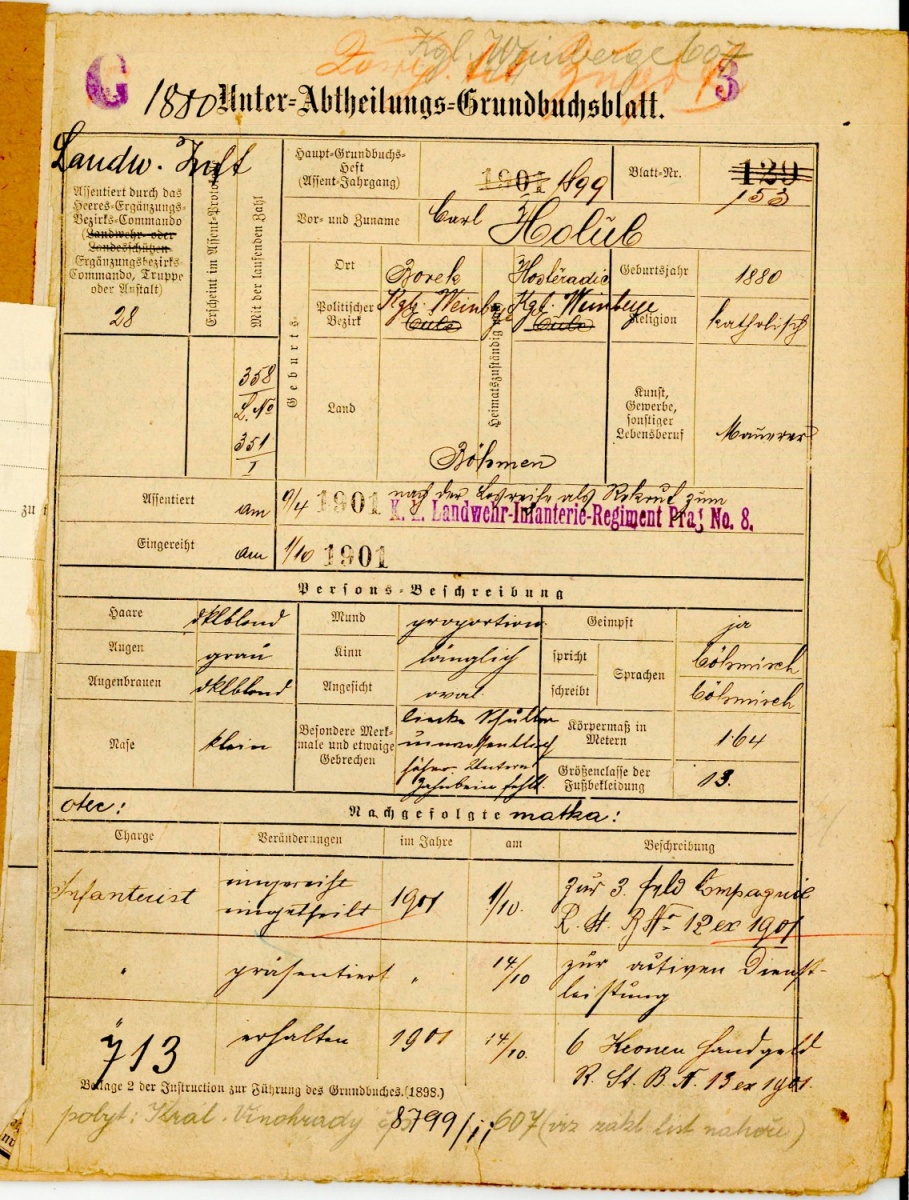 Kgl. Weinberge 607
G
3
1880 Unter=Abtheilungs=Grundbuchsblatt.
Landw. Inft
Assentiert durch das Heeres=Ergänzungs-Bezirks=Commando (Landwehr= oder Landesschützen-Ergänzungsbezirks-Commando, Truppe oder Anstalt)
28
Erscheint im Assent=Protokoll
Mit der laufenden Zahl
358
L. No
351
I
Haupt=Grundbuchs-Heft (Assent=Jahrgang)
1901 1899
Blatt=Nr.
129
153
Vor= und Zuname
Carl Holub
Geburts-
Ort
Borek
Heimatszuständig
Hostěradic
Geburtsjahr
1880
Politischer Bezirk
Kgl. Weinbge
Kgl. Weinberge
Religion
katholisch
Land
Böhmen
Kunst, Gewerbe, sonstiger Lebensberuf
Maurer
Assentiert am 9/4 1901 nach der Losreihe als Rekrut zum
K. k. Landwehr-Infanterie-Regiment Prag No. 8.
Eingereiht am 1/10 1901
Persons=Beschreibung
Haare dklblond
Mund proportion.
Geimpft ja
Augen grau
Kinn länglich
spricht
Sprachen
böhmisch
Augenbrauen dklblond
Angesicht oval
schreibt
böhmisch
Nase klein
Besondere Merkmale und etwaige Gebrechen
linke Schulter
unwesentlich
höher. Unterer
Zahnbein fehlt.
Körpermaß in Metern
1·64
Größenclasse der Fußbekleidung
13.
otec:
Nachgefolgte
matka:
Charge Veränderungen im Jahre am Beschreibung
Infanterist eingereiht 1901 1/10. zur 3. Feld Compagnie
eingetheilt R. St. B No 12 ex 1901
" präsentiert " 14/10 zur activen Dienst-
leistung
" erhalten 1901 14/10. 6 Kronen Handgeld
R. St. B N. 13 ex 1901.
713
Beilage 2 der Instruction zur Führung des Grundbuches. (1898.)
pobyt: Král. Vinohrady čp 607 (viz zákl. list nahoře)
8799/II
zu